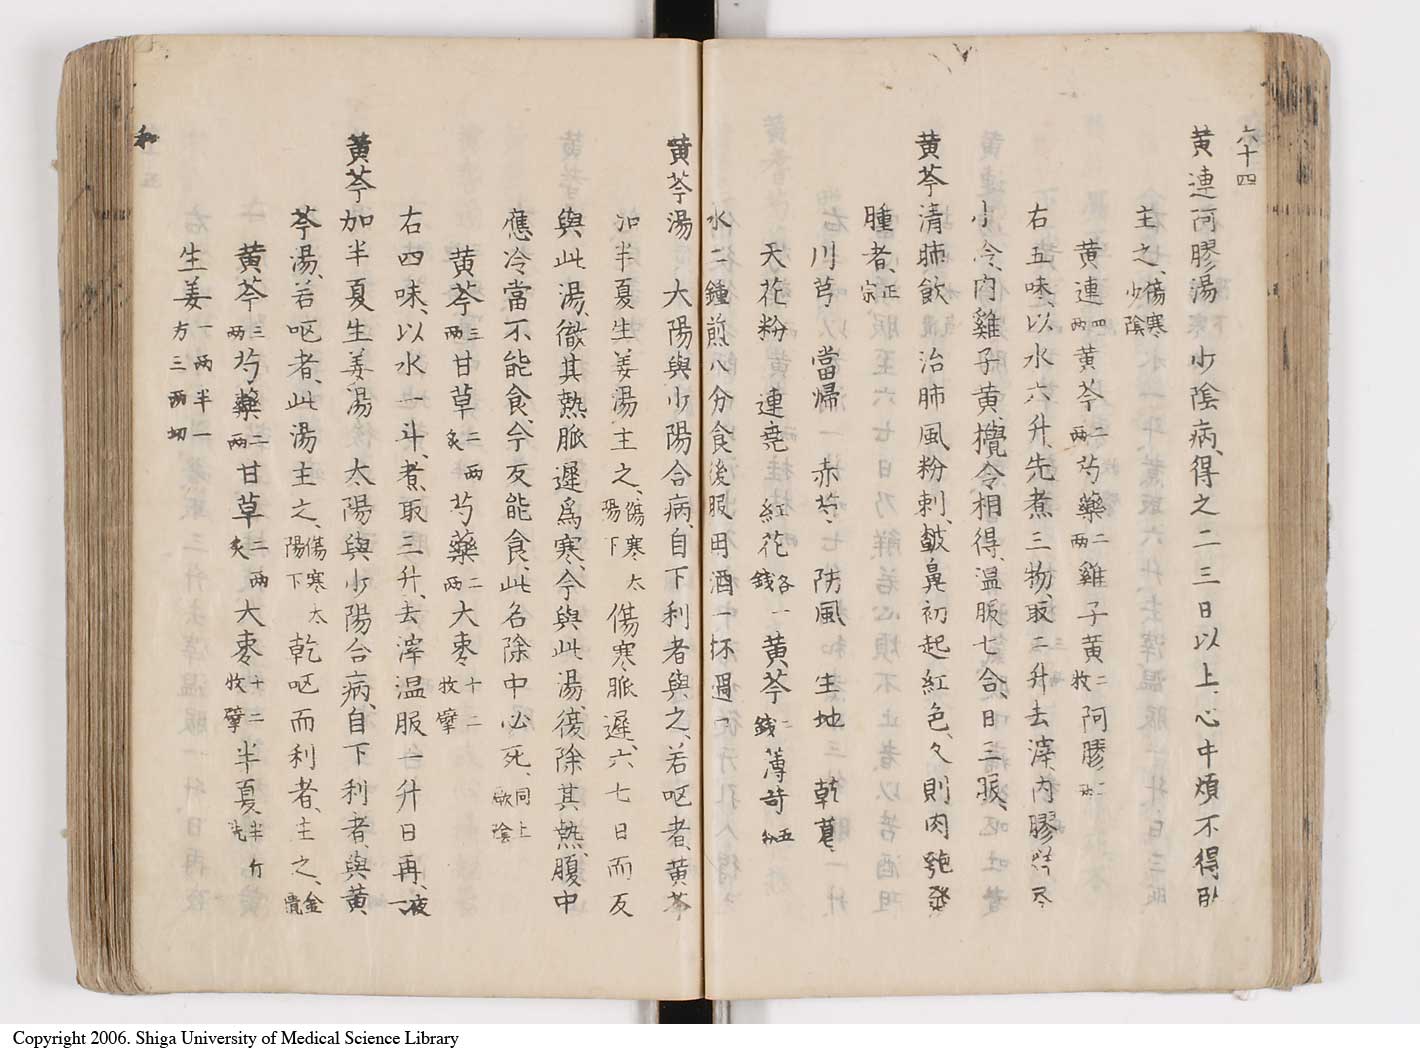 六十四
黄連阿膠湯 少陰病、得之二三日以上、心中煩不得臥
主之、傷寒少陰
黄連四兩黄芩二兩芍藥二兩雞子黄二枚阿膠三兩
右五味、以水六升、先煮三物、取二升去滓、内膠烊尽
小冷、内雞子黄、攪令相得、温服七合、日三服、
黄芩清肺飲 治肺風粉刺、皶鼻初起紅色、久則肉匏発
腫者、正宗
川芎 當帰 赤芍 防風 生地 乾葛
天花粉 連堯 紅花各一錢 黄芩二錢薄苛五分
水二鐘煎八分食後服用酒一杯過口
黄芩湯 大陽與少陽合病、自下利者與之、若呕者、黄芩
加半夏生姜湯主之、傷寒太陽下 傷寒脈遲、六七日而反
與此湯、徹其熱脈遲爲寒、今與此湯、復除其熱、腹中
應冷當不能食、今反能食、此名除中必死、同上厥陰
黄芩三兩甘草二兩炙芍藥二兩大枣十二枚擘
右四味、以水一斗、煮取三升、去滓温服一升日再、夜一
黄芩加半夏生姜湯 太陽與少陽合病、自下利者、與黄
芩湯、若呕者、此湯主之、傷寒太陽下 乾呕而利者、主之、金匱
黄芩三兩芍藥二兩甘草二兩炙大枣十二枚擘半夏半升洗
生姜一兩半一方三兩切
和
Copyright 2006. Shiga University of Medical Science Library